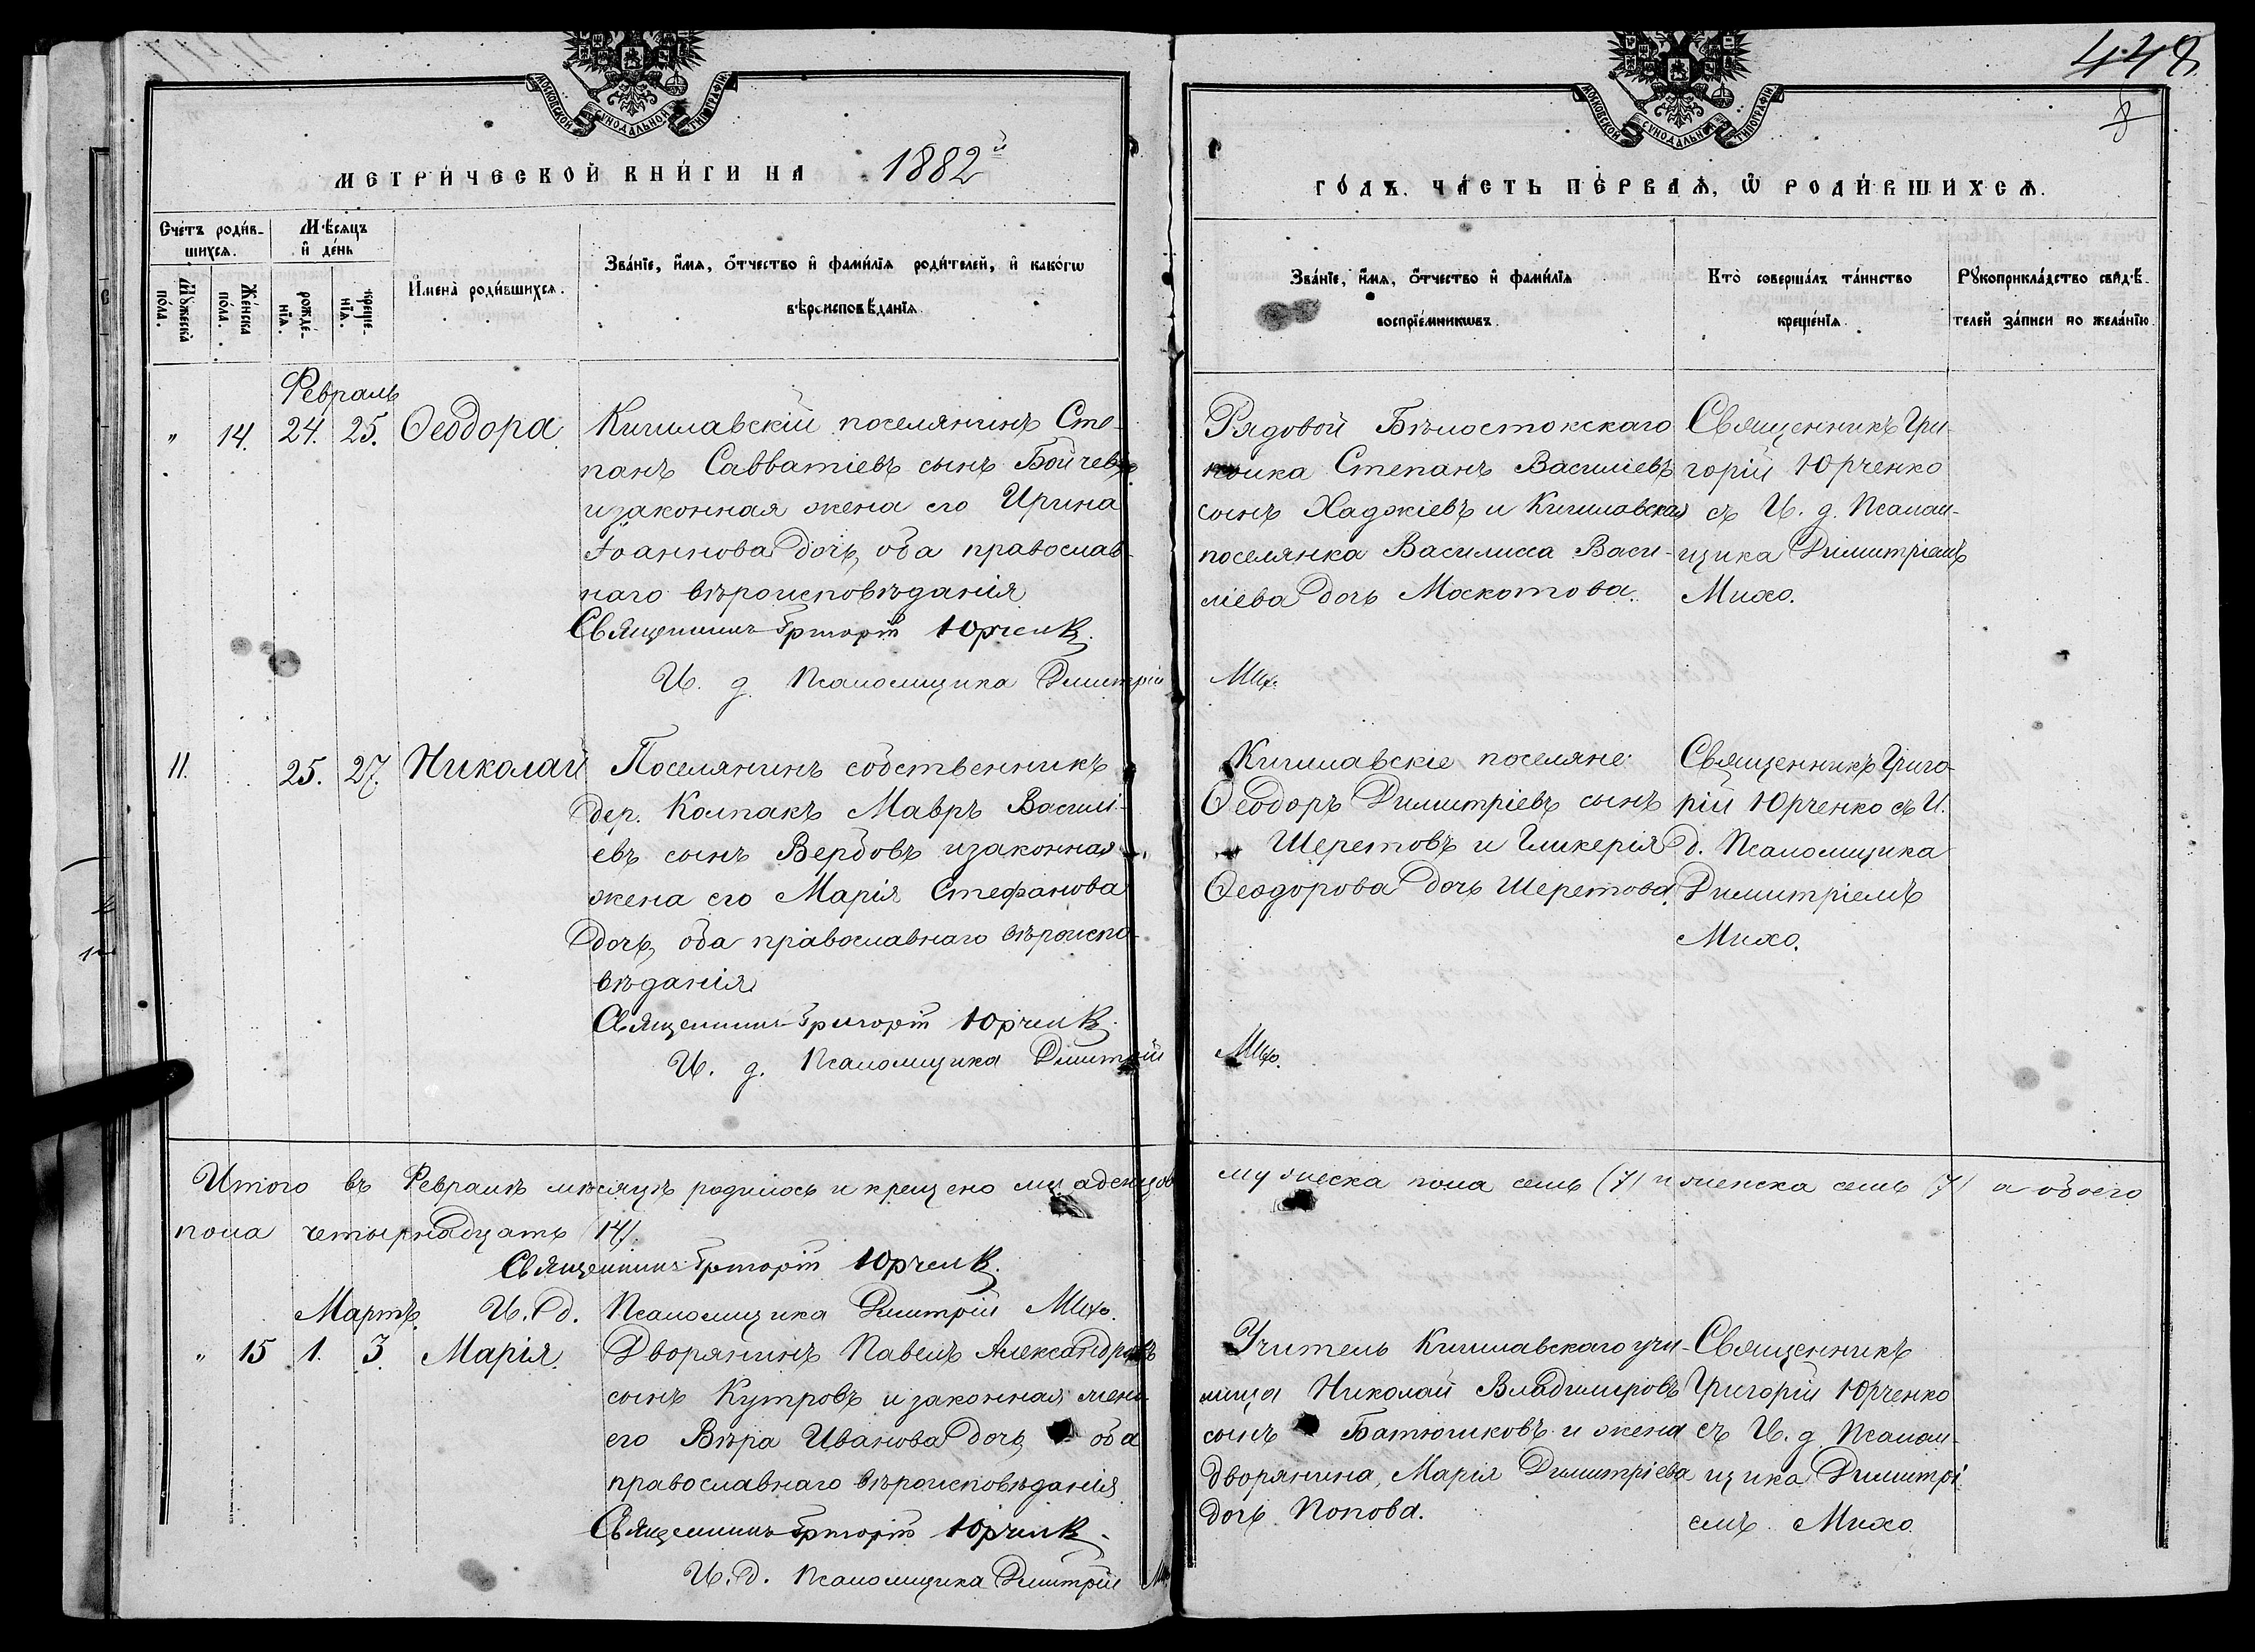 448
МОСКОВСКОЙ СУНОДАЛЬНОЙ ТИПОГРАФІИ
МЕТРИ́ЧЕСКОЙ КНИ́ГИ НА 1882й
Сче́тъ роди́в-
шихся.
Мѣ́сяцъ
и҆ де́нь
Мꙋ́жеска
по́ла.
Же́нска
по́ла.
рожде́-
нїя.
креще́-
нїя.
И҆мена̀ роди́вшихся.
Зва́нїе, и҆́мя, ѻ҆́тчество и҆ фами́лїя роди́телей, и҆ како́гѡ
вѣроисповѣ́данїя.
Февраль
" 14. 24. 25. Ѳеодора
Кишлавскій поселянинъ Сте-
панъ Савватіевъ сынъ Бойчевъ
и законная жена его Ирина
Іоаннова дочь, оба православ-
наго вѣроисповѣданія
Священникъ Григорій Юрченко.
И. д. Псаломщика Димитрій
11. 25. 27. Николай
Поселянинъ собственникъ
дер. Колпакъ Мавръ Василі-
евъ сынъ Вербовъ и законная
жена его Марія Стефанова
дочь, оба православнаго вѣроиспо-
вѣданія
Священникъ Григорій Юрченко.
И. д. Псаломщика Димитрій
Итого въ Февралѣ мѣсяцѣ родилось и крещено младенцовъ
пола четырнадцать (14).
Священникъ Григорій Юрченко.
Мартъ. И. д. Псаломщика Димитрій Михо.
" 15 1. 3. Марія.
Дворянинъ Павелъ Александровъ
сынъ Кутровъ и законная жена
его Вѣра Иванова дочь, оба
православнаго вѣроисповѣданія
Священникъ Григорій Юрченко.
И. д. Псаломщика Димитрій
МОСКОВСКОЙ СУНОДАЛЬНОЙ ТИПОГРАФІИ
ГО́ДЪ. ЧА́СТЬ ПЕ́РВАЯ, Ѡ҆ РОДИ́ВШИХСЯ.
Зва́нїе, и҆́мя, ѻ҆́тчество и҆ фами́лїя
воспрїе́мникѡвъ.
Кто̀ соверша́лъ та́инство
креще́нїя.
Рꙋкоприкла́дство свидѣ́-
телей за́писи по жела́нїю.
Рядовой Бѣлостокскаго
полка Степанъ Василіевъ
сынъ Хаджіевъ и Кишлавская
поселянка Василиса Васи-
ліева дочь Москотова.
Священникъ Гри-
горій Юрченко
съ И. д. Псалом-
щика Димитріемъ
Михо.
Михо.
Кишлавскіе поселяне
Ѳеодоръ Димитріевъ сынъ
Шеретовъ и Гликерія
Ѳеодорова дочь Шеретова.
Священникъ Григо-
рій Юрченко съ И.
д. Псаломщика
Димитріемъ
Михо.
Михо.
мужеска пола семь (7) и женска семь (7) а обоего
Учитель Кишлавскаго учи-
лища Николай Владимировъ
сынъ Батюшковъ и жена
дворянина, Марія Димитріева
дочь Попова.
Священникъ
Григорій Юрченко
съ И. д. Псалом-
щика Димитрі-
емъ Михо.